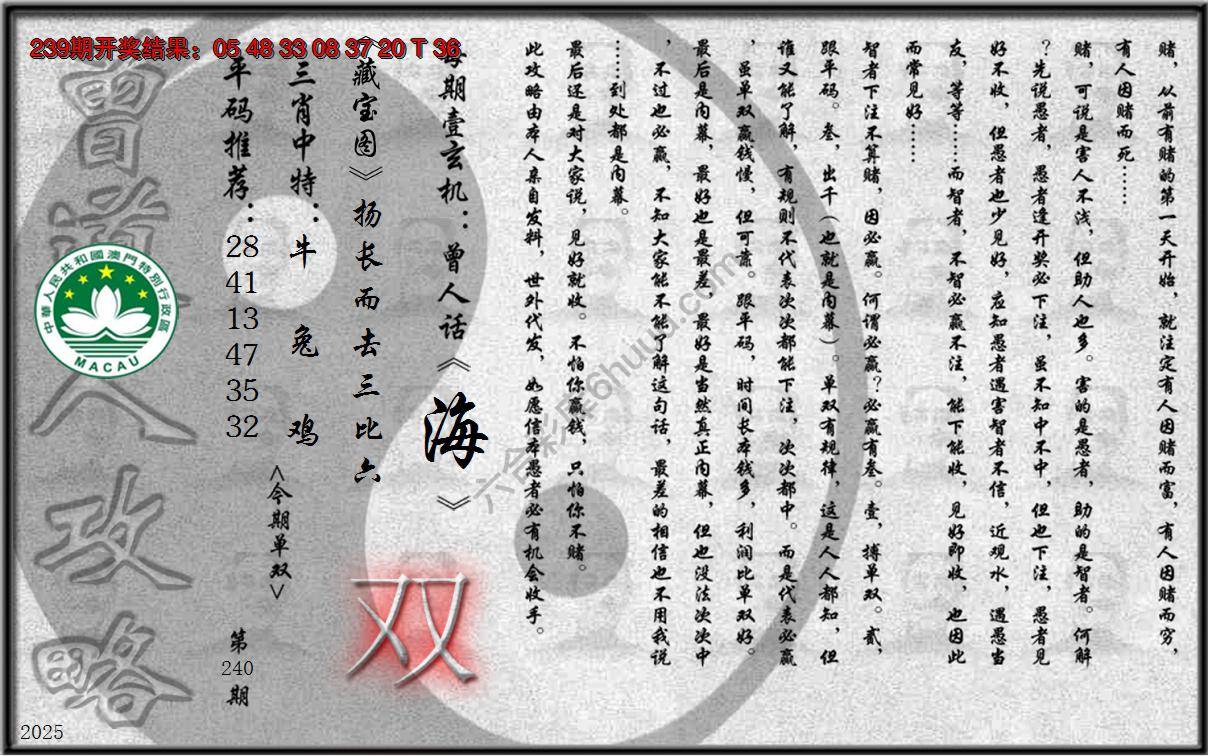 239期开奖结果：05 48 33 08 37 20 T 36
赌，从前有赌的第一天开始，就注定有人因赌而富，有人因赌而穷，
有人因赌而死……
赌，可说是害人不浅，但助人也多。害的是愚者，助的是智者。何解
？先说愚者，愚者逢开奖必下注，虽不知中不中，但也下注，愚者见
好不收，但愚者也少见好，应知愚者遇害智者不信，近观水，遇愚当
友，等等……而智者，不智必赢不注，能下能收，见好即收，也因此
而常见好……
智者下注不算赌，因必赢。何谓必赢？必赢有叁。壹，搏单双。贰，
跟平码。叁，出千（也就是内幕）。单双有规律，这是人人都知，但
谁又能了解，有规则不代表次次都能下注，次次都中。而是代表必赢
，虽单双赢钱慢，但可靠。跟平码，时间长本钱多，利润比单双好。
最后是内幕，最好也是最差。最好是当然真正内幕，但也没法次次中
，不过也必赢，不知大家能不能了解这句话，最差的相信也不用我说
……到处都是内幕。
最后还是对大家说，见好就收。不怕你赢钱，只怕你不赌。
此攻略由本人亲自发料，世外代发，如愿信本愚者必有机会收手。
每期壹玄机：曾人话《海》
《藏宝图》扬长而去三比六
双
三肖中特：牛 兔 鸡
<今期单双>
平码推荐：28 41 13 47 35 32
第240期
曾道人攻略
中華人民共和國澳門特別行政區
MACAU
2025
六合彩库6huuu.com